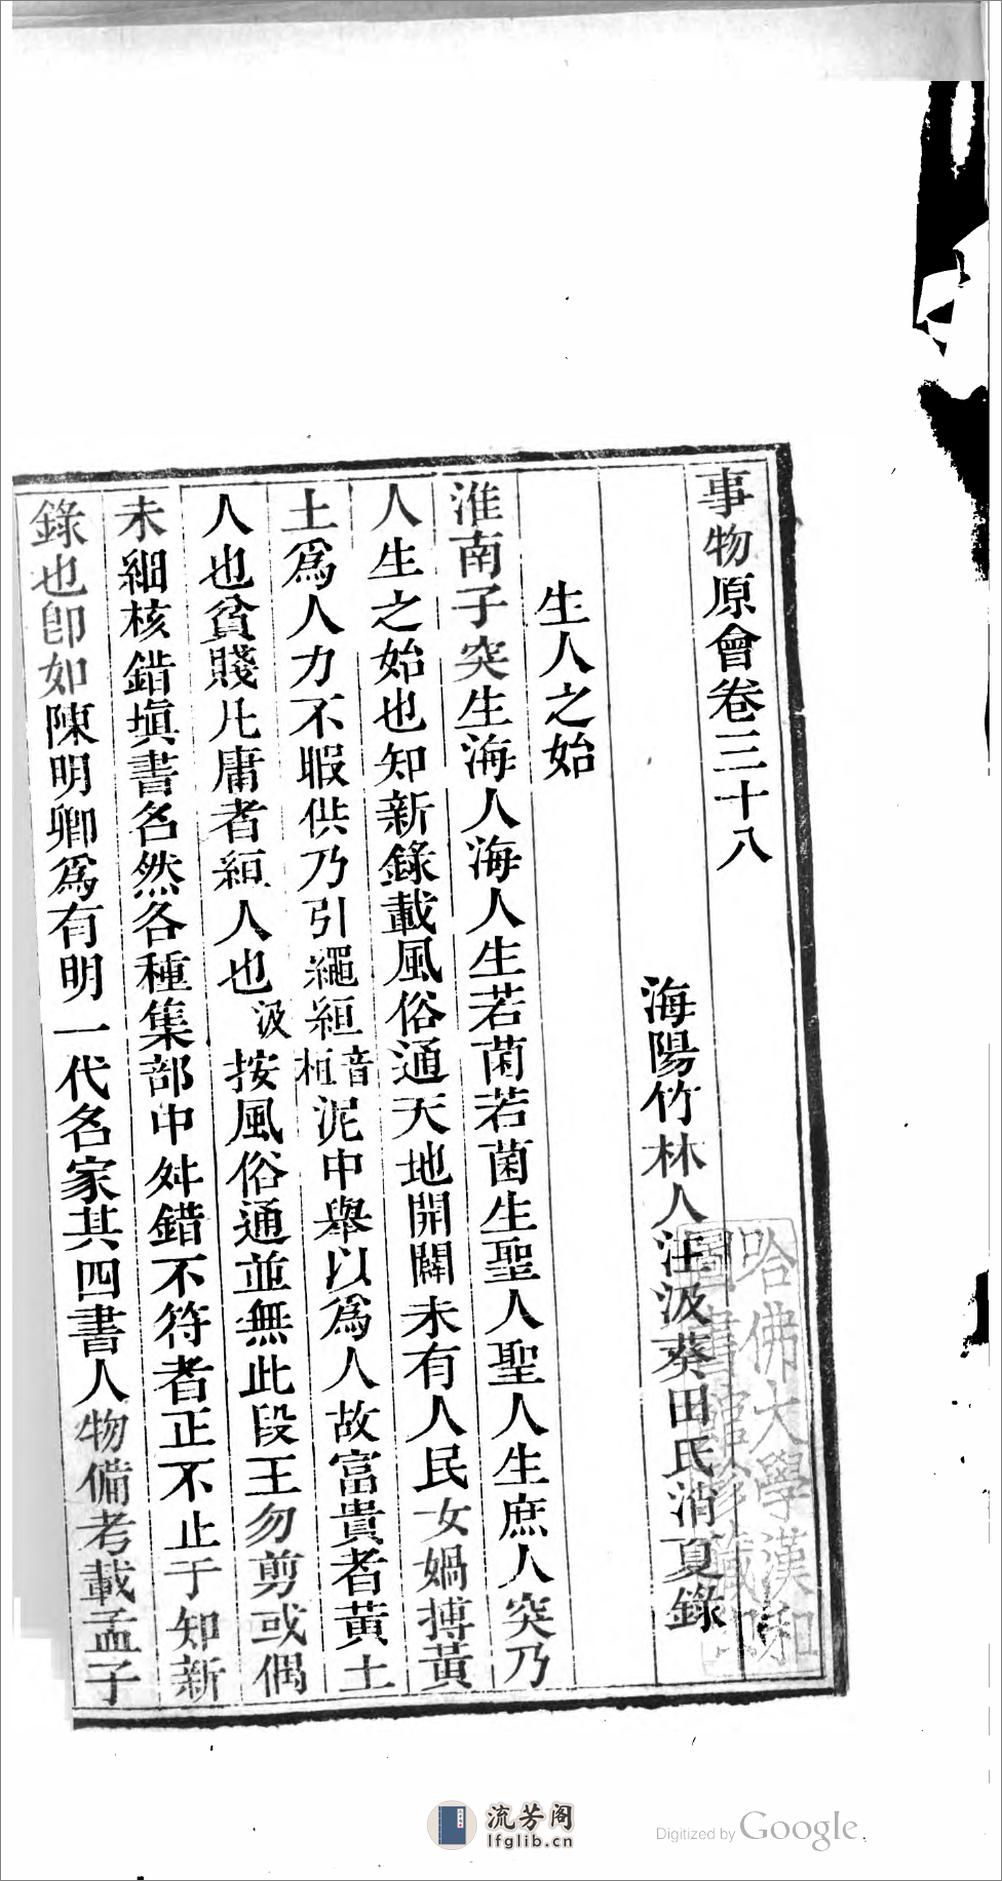 事物原會卷三十八
海陽竹林人汪汲葵田氏消夏錄
生人之始
淮南子突生海人海人生若菌若菌生聖人聖人生庶人突乃
人生之始也知新錄載風俗通天地開闢未有人民女媧摶黃
土爲人力不暇供乃引繩絙音桓泥中舉以爲人故富貴者黃土
人也貧賤凡庸者絙人也汲按風俗通並無此段王勿剪或偶
未細核錯塡書名然各種集部中舛錯不符者正不止于知新
錄也卽如陳明卿爲有明一代名家其四書人物備考載孟子
哈佛大學漢和
圖書館珍藏印
流芳阁
lfglib.cn
Digitized by Google